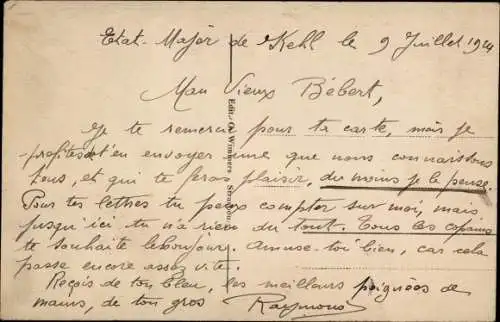 Etat-Major de Kehl le 9 Juillet 1924
Mon Vieux Bébert,
Je te remercie pour ta carte, mais je
profites de t'en envoyer une que nous connaissons
tous, et qui te fera plaisir, du moins je le pense.
Pour tes lettres tu peux compter sur moi, mais
jusqu'ici tu n'a rien du tout. Tous les copains
te souhaite le bonjours. Amuse-toi bien, car cela
passe encore assez vite.
Reçois de ton bleu, les meilleurs poignées de
mains, de ton gros Raymond
Edit. G. Wimmers, Strasbourg